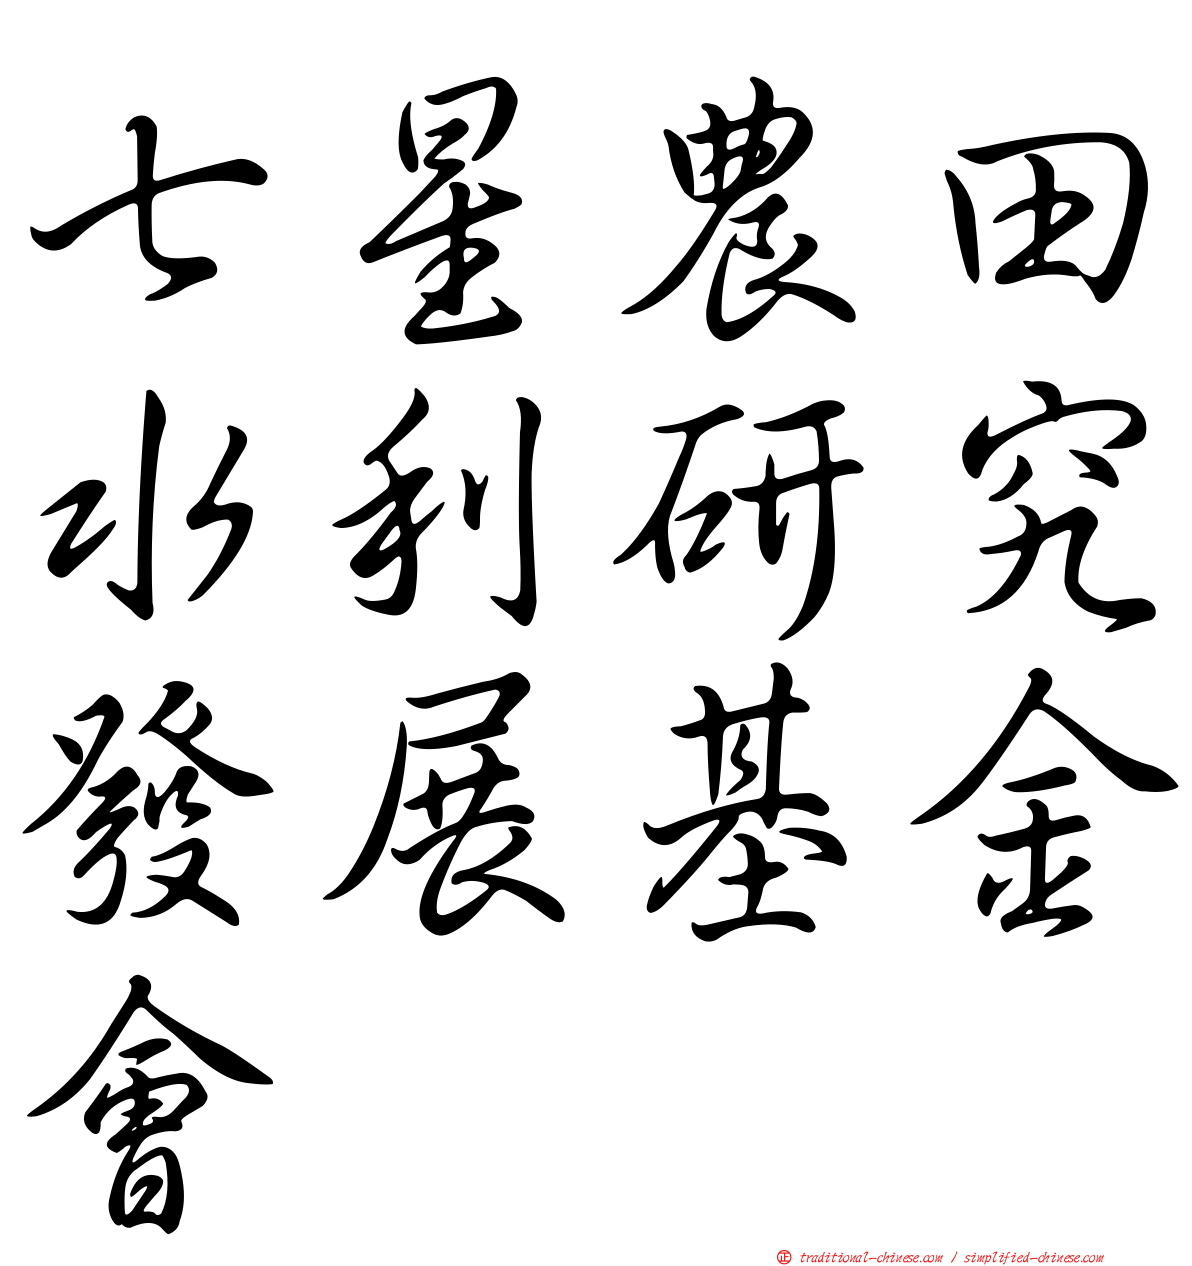 七星農田
水利研究
發展基金
會
正 traditional-chinese.com / simplified-chinese.com